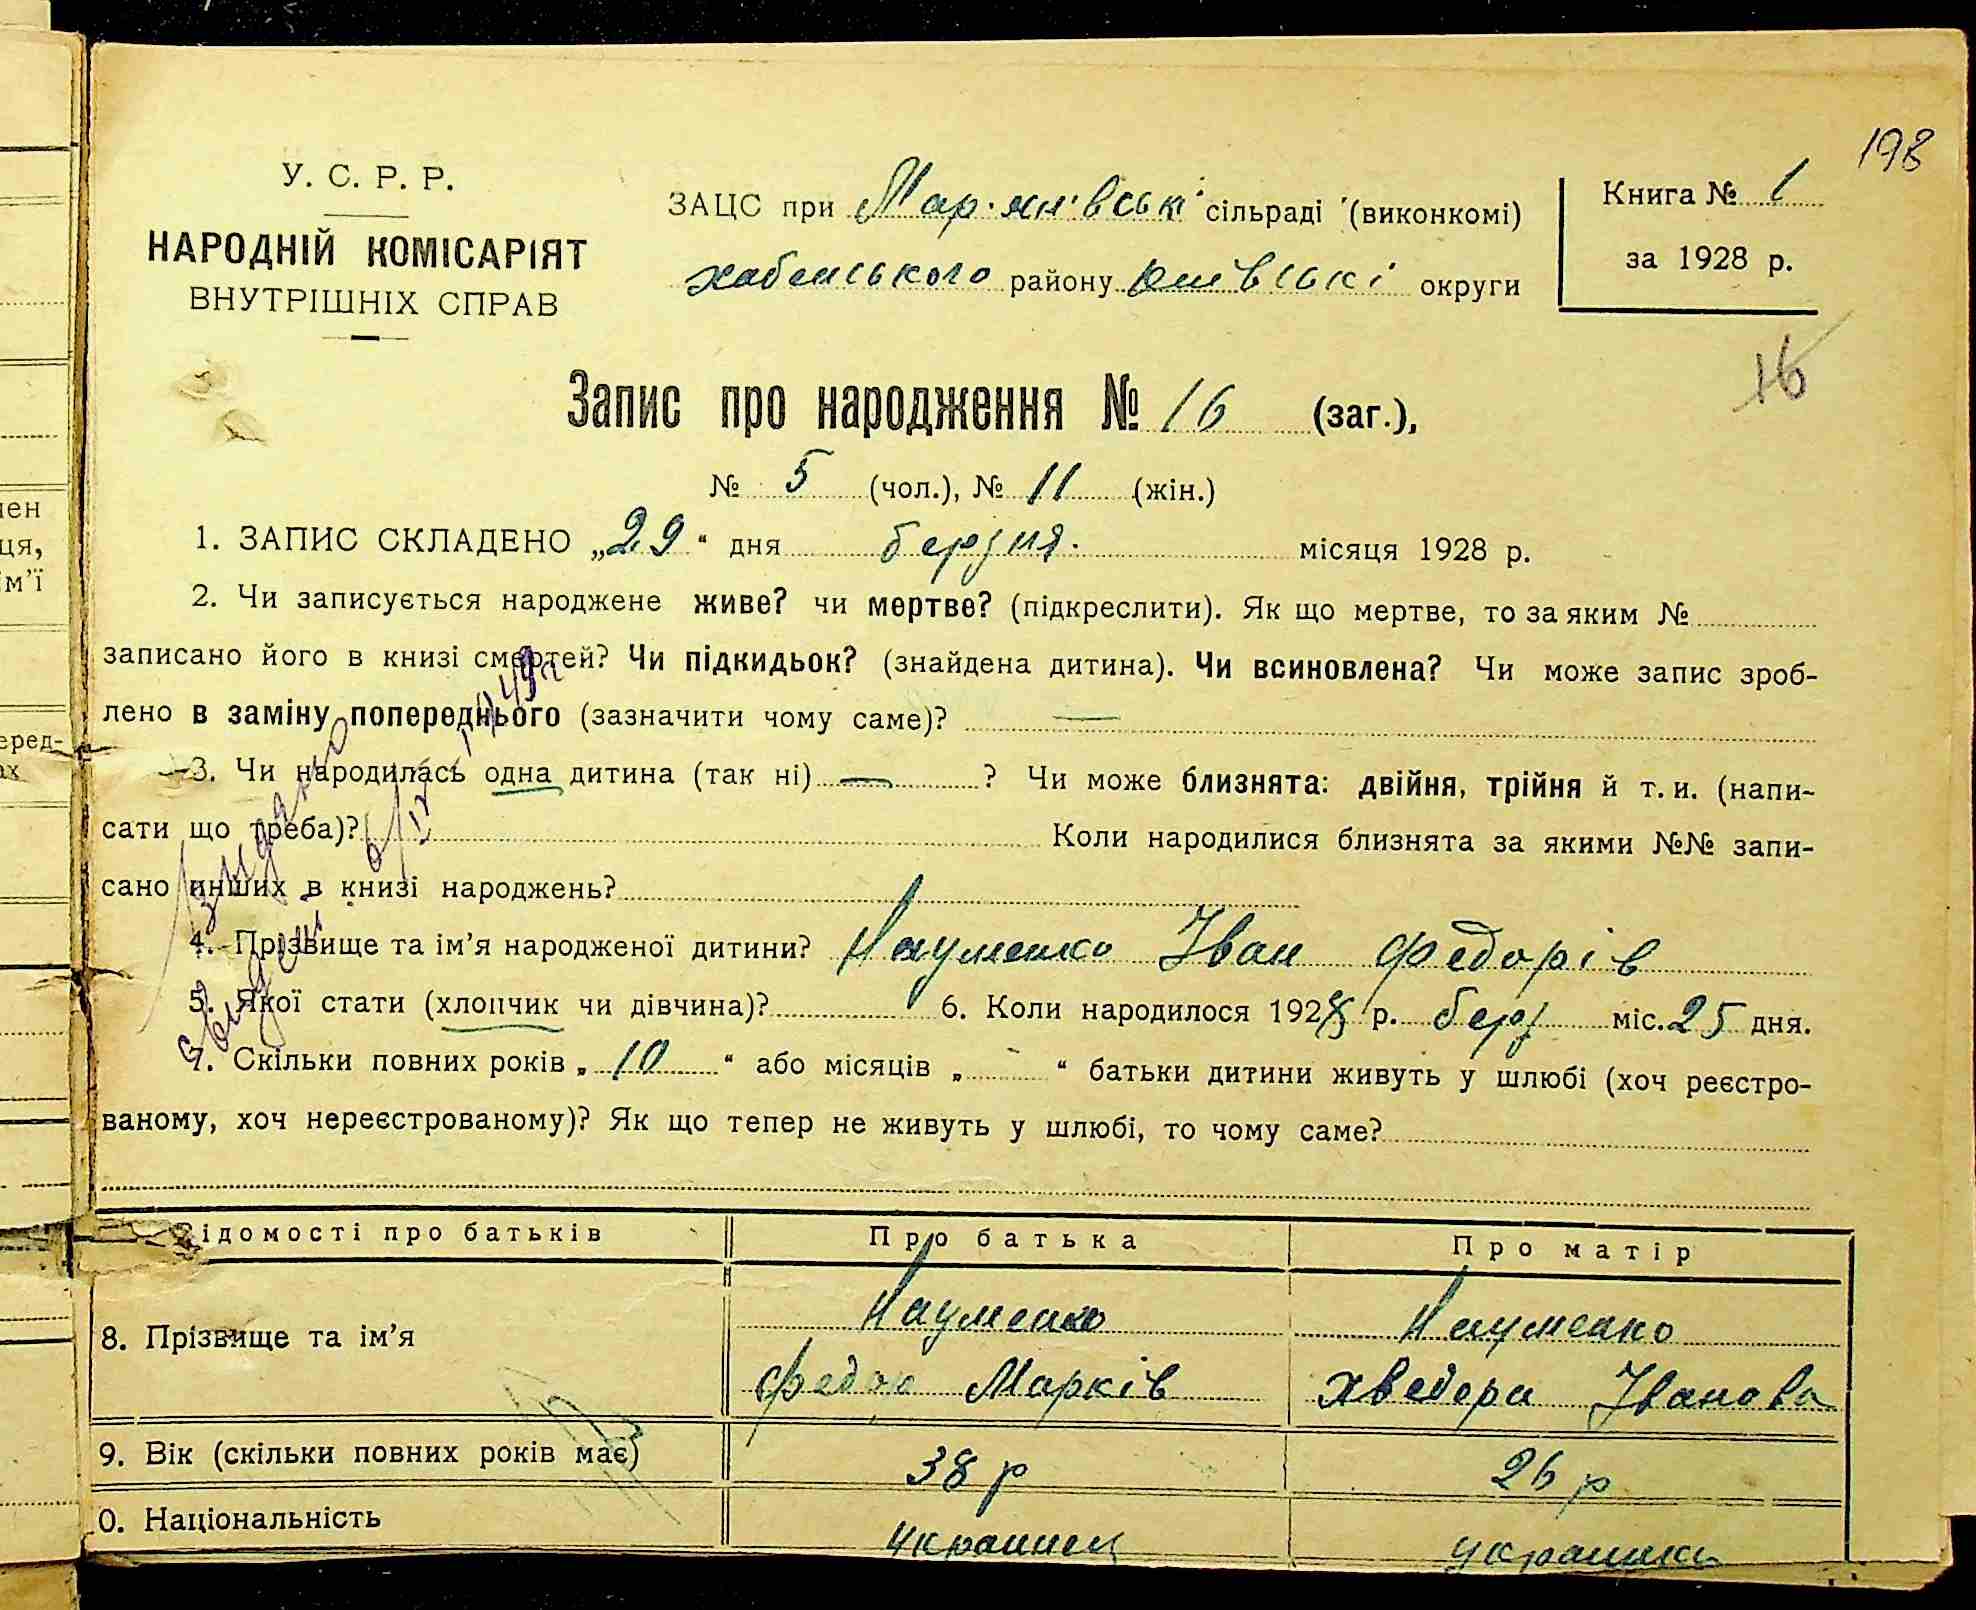 198
У. С. Р. Р.
НАРОДНІЙ КОМІСАРІЯТ
ВНУТРІШНІХ СПРАВ
ЗАЦС при Мар'янівські сільраді (виконкомі)
хабенського району Київські округи
Книга № 1
за 1928 р.
16
Запис про народження № 16 (заг.),
№ 5 (чол.), № 11 (жін.)
1. ЗАПИС СКЛАДЕНО „29“ дня березня місяця 1928 р.
2. Чи записується народжене живе? чи мертве? (підкреслити). Як що мертве, то за яким №
записано його в книзі смертей? Чи підкидьок? (знайдена дитина). Чи всиновлена? Чи може запис зроб-
лено в заміну попереднього (зазначити чому саме)? —
3. Чи народилась одна дитина (так ні) — ? Чи може близнята: двійня, трійня й т. и. (напи-
сати що треба)? Коли народилися близнята за якими №№ запи-
сано инших в книзі народжень?
4. Прізвище та ім’я народженої дитини? Науменко Іван Федорів
5. Якої стати (хлопчик чи дівчина)? 6. Коли народилося 1928 р. берз міс. 25 дня.
7. Скільки повних років „10“ або місяців „ “ батьки дитини живуть у шлюбі (хоч реєстро-
ваному, хоч нереєстрованому)? Як що тепер не живуть у шлюбі, то чому саме?
Відомості про батьків Про батька Про матір
8. Прізвище та ім’я Науменко Науменко
Марків Хведора Іванова
9. Вік (скільки повних років має) 38 р 26 р
0. Національність українец українка
чен
ця,
ім’ї
еред-
ах